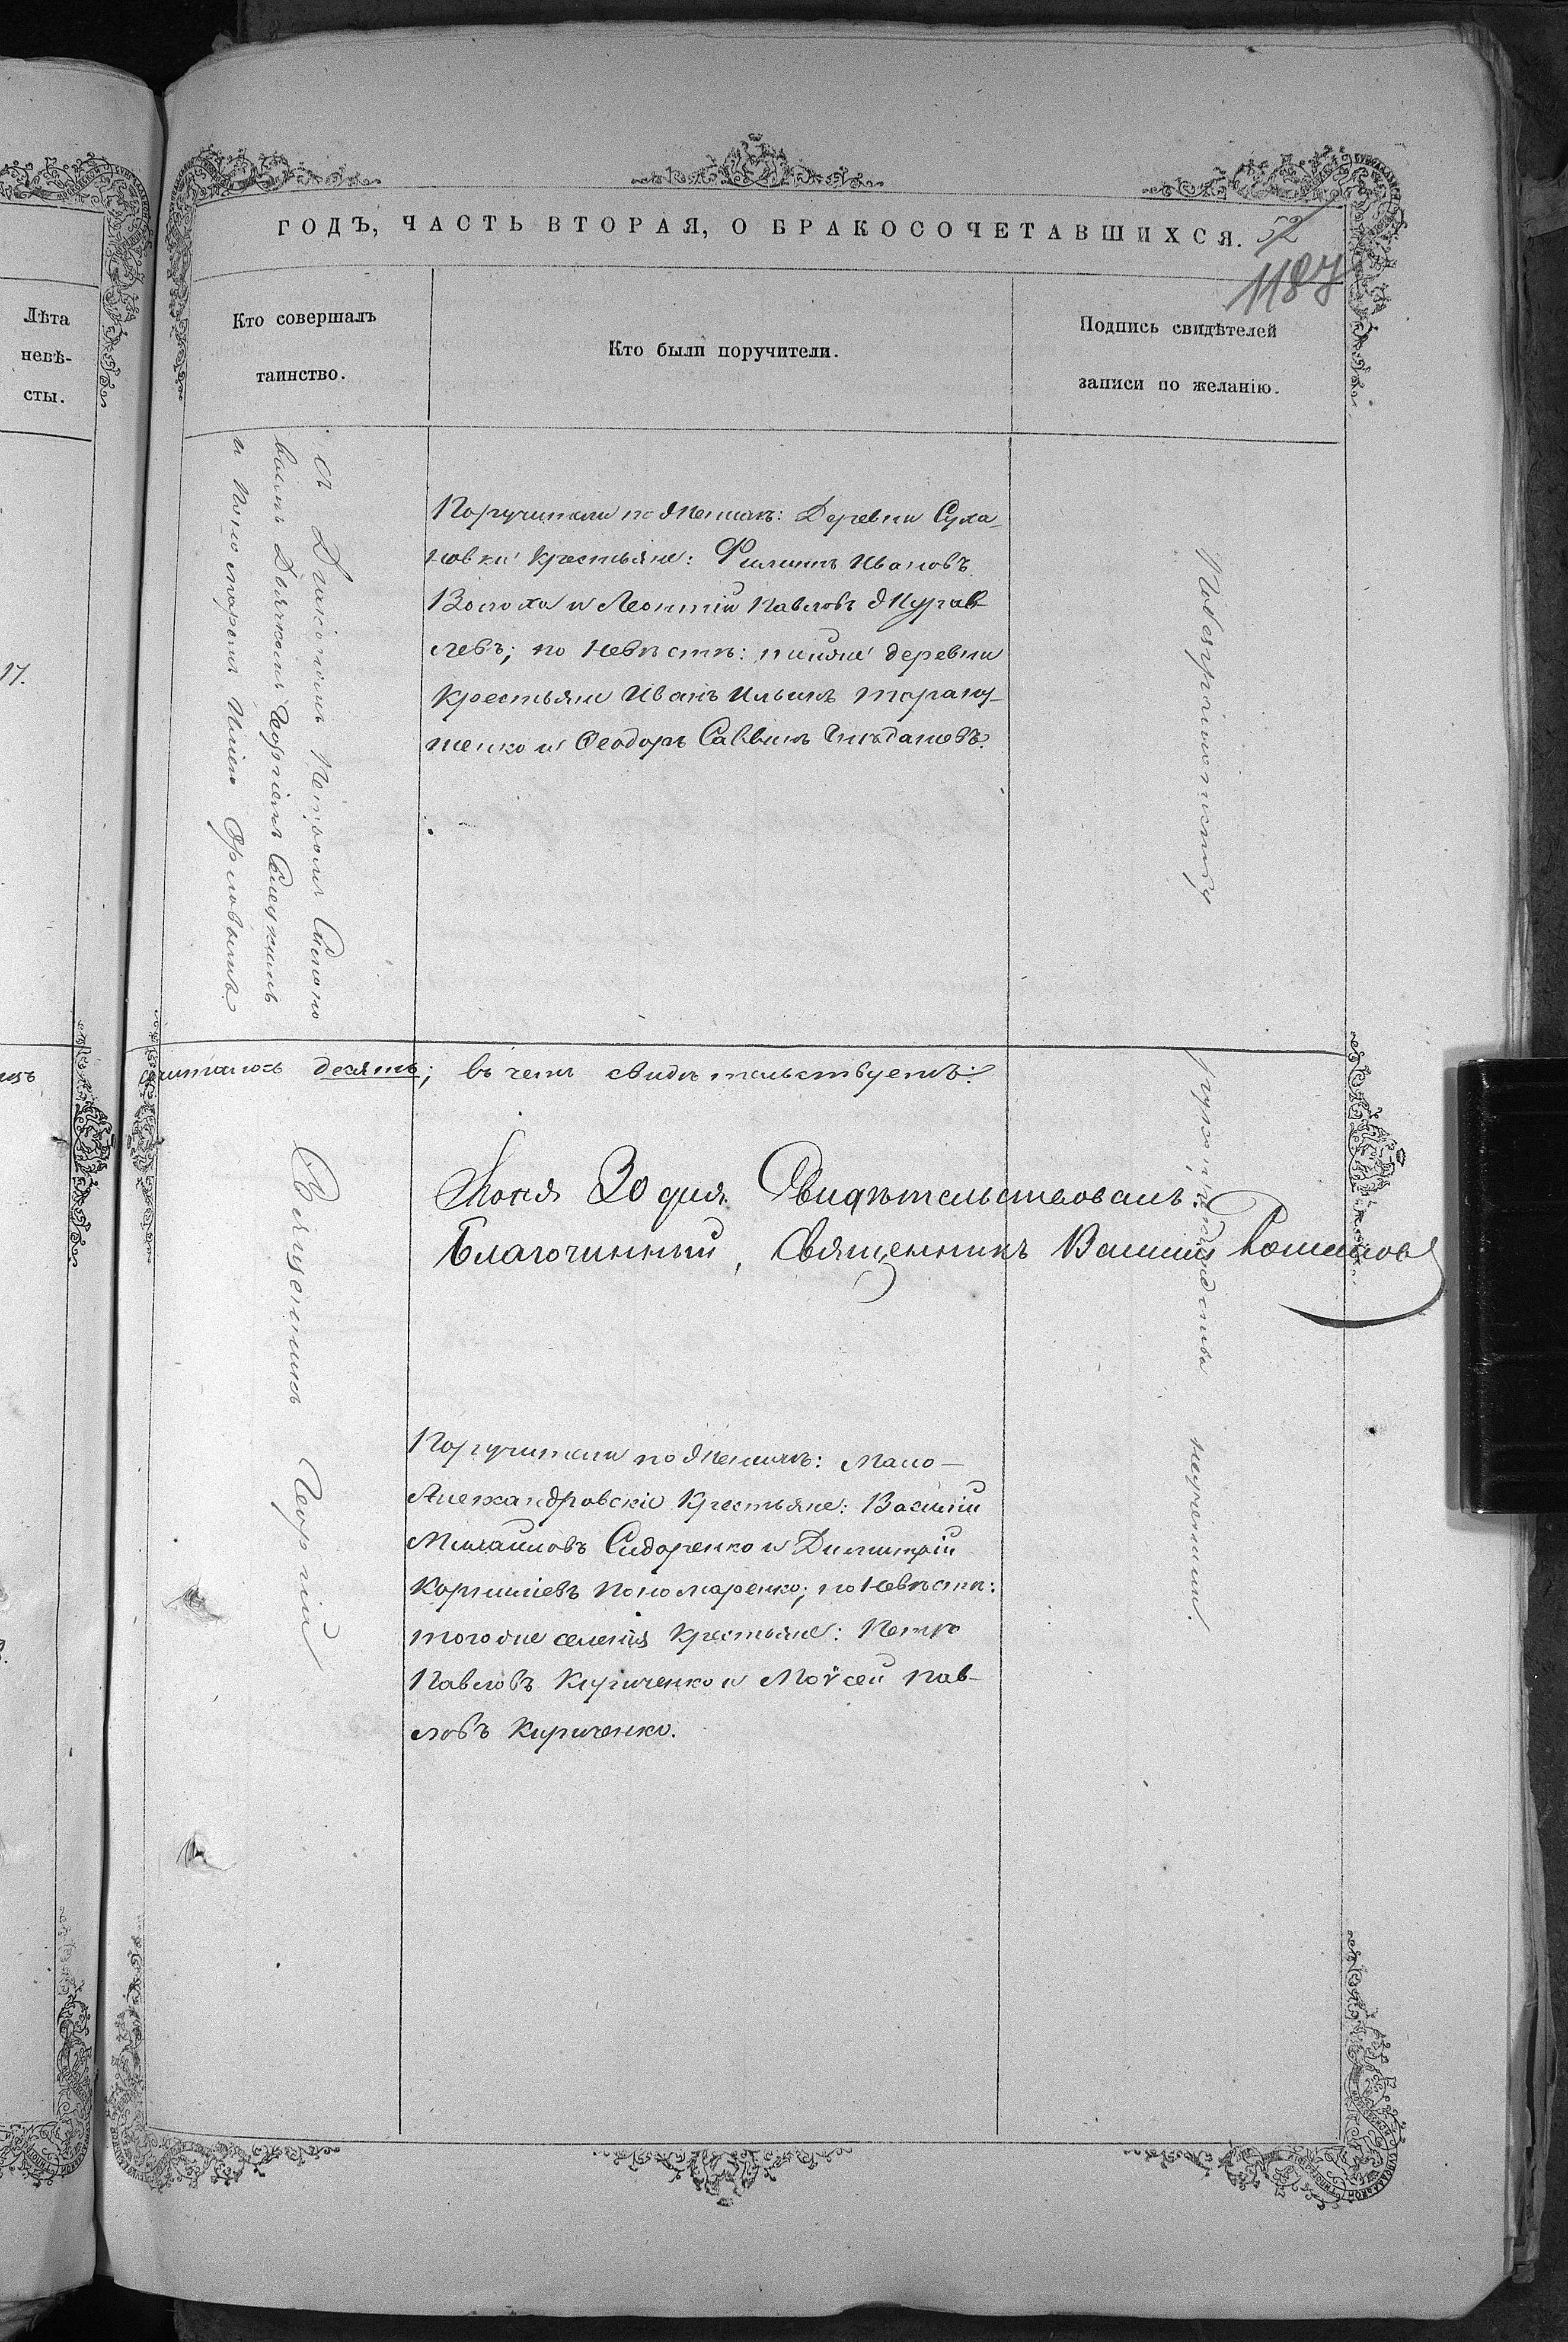 ГОДЪ, ЧАСТЬ ВТОРАЯ, О БРАКОСОЧЕТАВШИХСЯ. 52
1187
Лѣта
невѣ-
сты.
Кто совершалъ
таинство.
Кто были поручители.
Подпись свидѣтелей
записи по желанію.
17.
съ Діакономъ Петромъ Симоно
вымъ Дьячкомъ Георгіемъ
и Пономаремъ Иліею Орловымъ.
Поручители по Женихѣ: Деревни Суха-
новки крестьяне: Филиппъ Ивановъ
Волоха и Леонтій Павловъ Журав-
левъ; по Невѣстѣ: тойже деревни
Крестьяне Иванъ Ильинъ Тарану-
щенко и Ѳеодоръ Саввинъ
читалось десять; въ чемъ свидѣтельствуемъ:
Священникъ Георгій
Іюня 30 дня Свидѣтельствовалъ
Благочинный, Священникъ Василий
Поручители по Женихѣ: Мало-
Александровскіе Крестьяне: Василій
Михаиловъ Сидоренко и Димитрій
Корниліевъ Пономаренко; по Невѣстѣ:
тогоже селенія Крестьяне: Петръ
Павловъ Кириченко и Моѵсей Пав-
ловъ Кириченко.